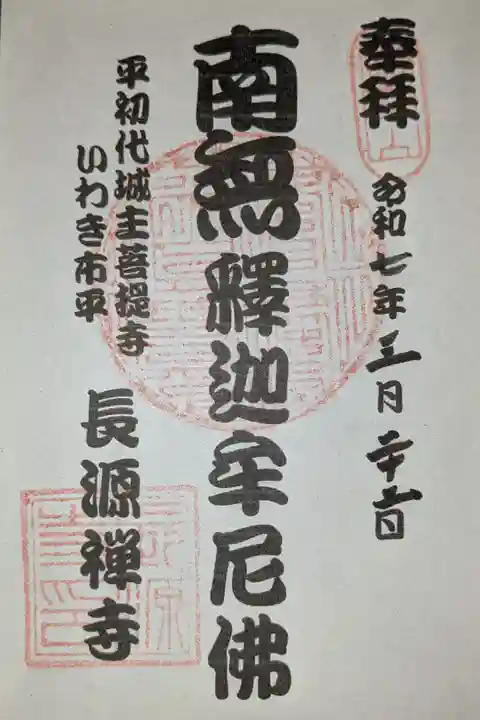 奉拝
令和七年三月二十六日
南無釋迦牟尼佛
平初代城主菩提寺
いわき市平
長源禅寺